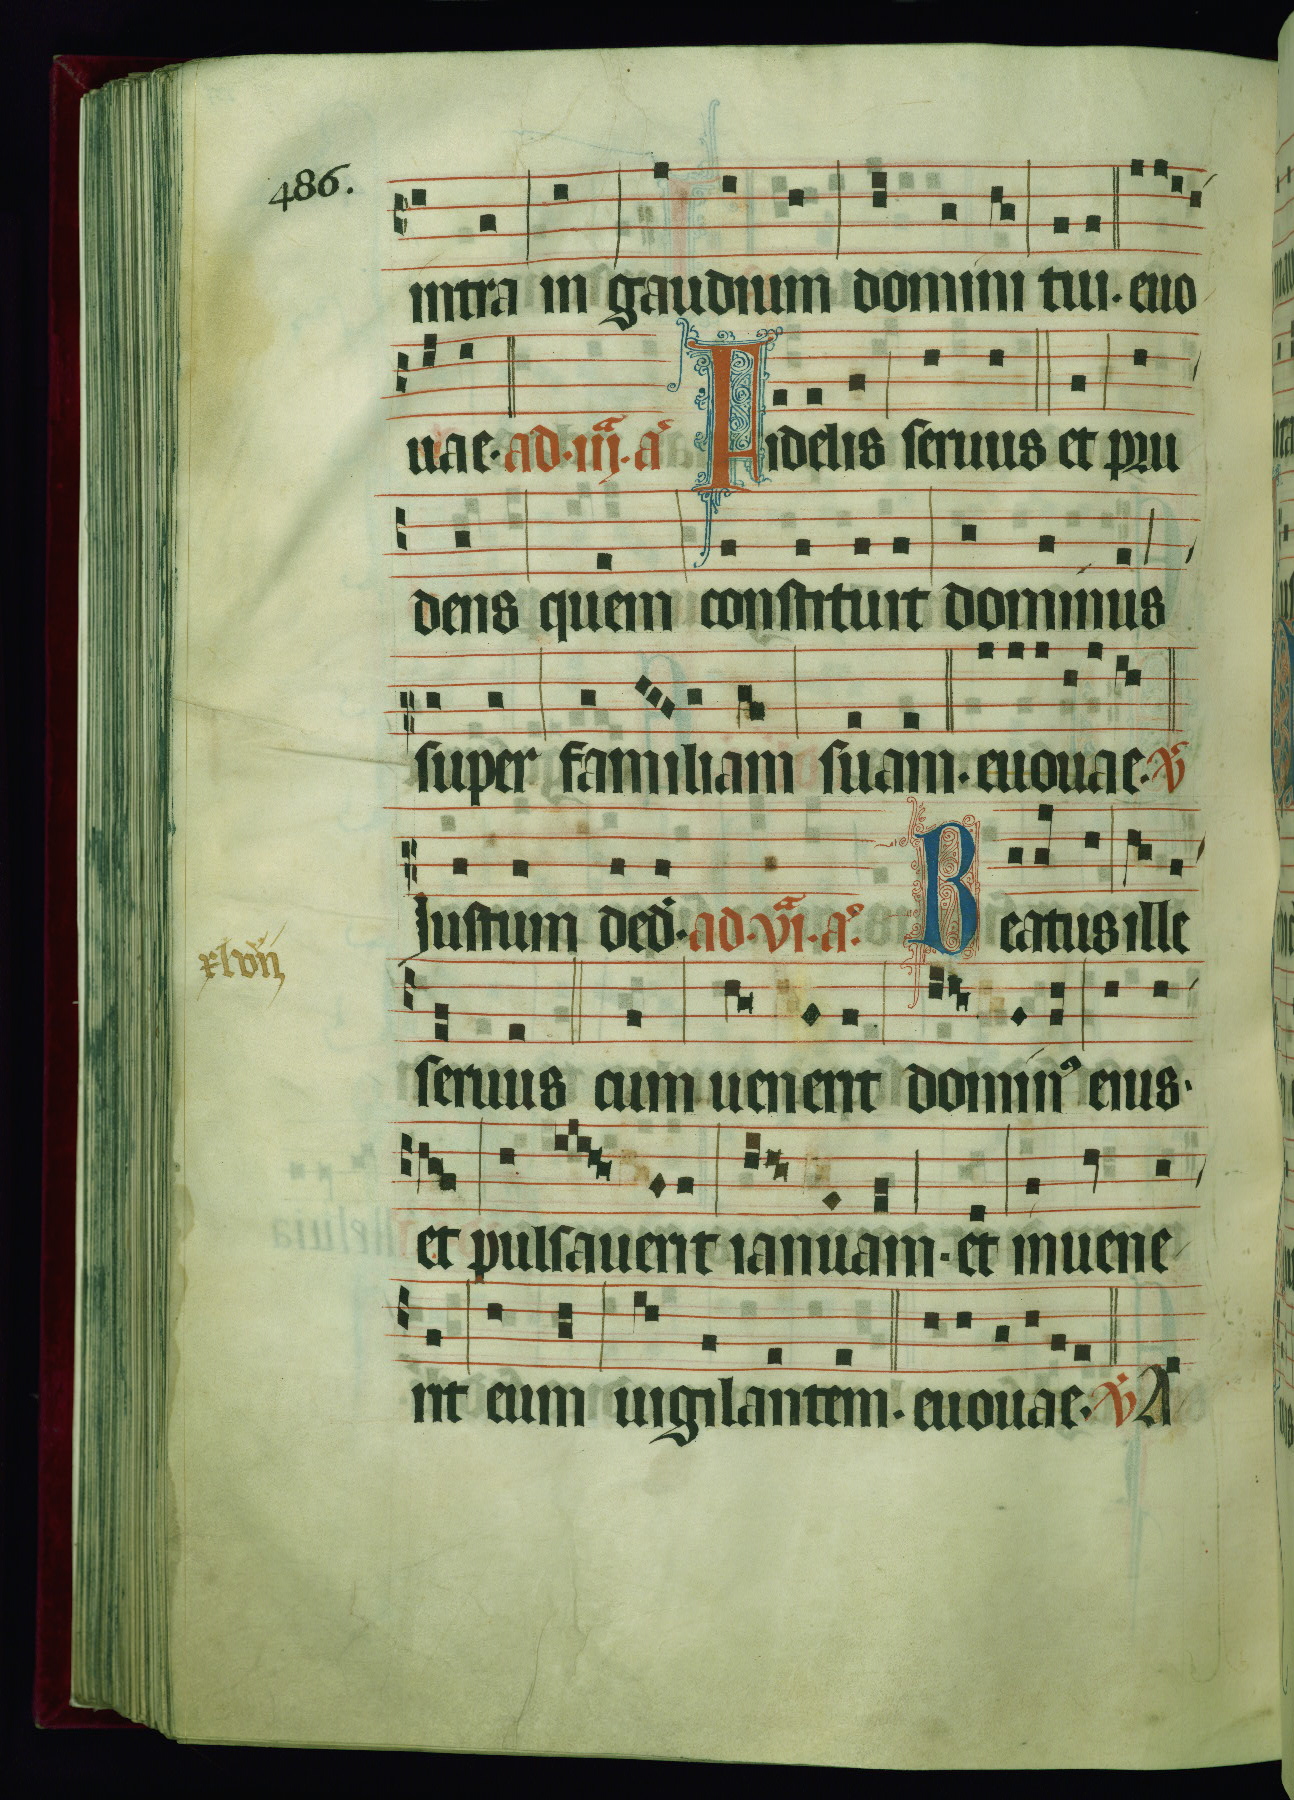 486.
intra in gaudium domini tui. euo
uae. ad. iii. a Fidelis seruus et pru
dens quem constituit dominus
super familiam suam. euouae. v
Justum ded. ad. vi. a. Beatus ille
xlvii
seruus cum uenerit domin⁹ eius.
et pulsauerit ianuam. et inuene
rit eum uigilantem. euouae. v A